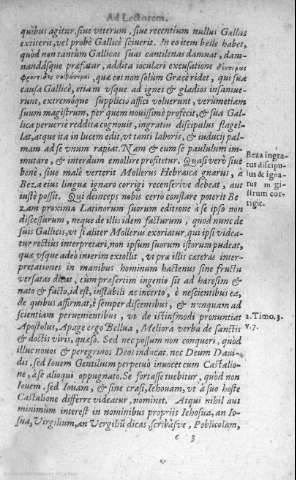 Ad Lectorem.
quibus agitur, siue veterum, siue recentium nullus Gallos
extiterit, vel probè Gallicè sciuerit. In eo item belle habet,
quòd non tantùm Gallicas suas cantilenas damnat, dam-
nandásque præfatur, addita ioculari excusatione
quæ eos non solùm Græcè ridet, qui suæ
causa Gallicè, etiam vsque ad ignes & gladios insanue-
runt, extremóque supplicio affici voluerunt, verumetiam
suum magistrum, per quem nouissimè profecit, & sua Gal-
lica peruerse reddita cognouit, ingratus discipulus flagel-
lat, atque ita in lucem edit, vt tanti laboris, & inducij pal-
mam ad se vnum rapiat. Nam & cum se paululum im-
mutare, & interdum emollire profitetur. Quasi verò siue
bene, siue malè verterit Mollerus Hebraica gnarus, à
Beza eius lingua ignaro corrigi recensirive debeat, aut
iustè possit. Qui deinceps nobis certò constare poterit Be
zam proximis Latinorum suorum editione à se ipso non
discessurum, neque de illis idem facturum, quod nunc de
suis Gallicis, vt si aliter Mollerus exoriatur, qui ipsi videa-
tur rectius interpretari, non ipsum suorum istorum pudeat,
quæ vsque adeò inuerim extollit, vt præ illis cæteras inter-
pretationes in manibus hominum hactenus sine fructu
versatas dicat, cum præsertim ingenio sit ad hæresim &
nato & facto, id est, instabili & incerto, è nescientibus ea,
de quibus affirmat, è semper discentibus, & nunquam ad
scientiam peruenientibus, vt de istiusmodi pronuntiat
Apostolus, Apage ergo Bellua, Meliora verba de sanctis
& doctis viris, quæso. Sed nec possum non conqueri, quòd
illuc nouos & peregrinos Deos inducat, nec Deum Daui-
dis, sed Iouem Gentilium perpetuò inuocet cum Castalio-
ne, à se alioqui oppugnato. Se fortasse tuebitur, quòd non
Iouem, sed Iouam, & sine crasi, Iehouam, vt à suo hoste
Castalione differre videatur, nominet. Atqui nihil aut
minimum interest in nominibus propriis Iehosua, an Io-
sua, Virgilium, an Vergiliũ dicas, scribásve, Poblicolam,
c 3
Beza ingra-
tus discipu-
lus & igna-
rus magi-
strum cor-
rigit.
2. Timo. 3.
v. 7.